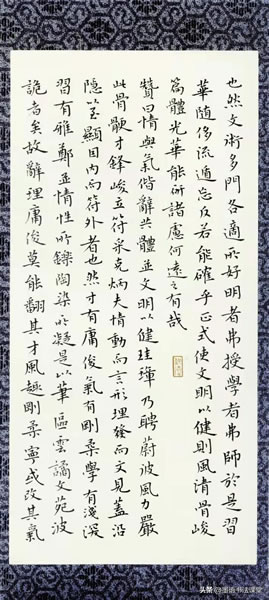 也然文術多門各適所好明者弗授學者弗師於是習
華隨侈流遁忘反若能確乎正式使文明以健則風清骨峻
篇體光華能研諸慮何遠之有哉
贊曰情與氣偕辭共體並文明以健珪璋乃聘蔚彼風力嚴
此骨鯁才鋒峻立符采克炳夫情動而言形理發而文見蓋沿
隱至顯因內而符外者也然才有庸俊氣有剛柔學有淺深
習有雅鄭並情性所鑠陶染所凝是以筆區雲譎文苑波
詭者矣故辭理庸俊莫能翻其才風趣剛柔寧或改其氣
头条 @墨语书法课堂